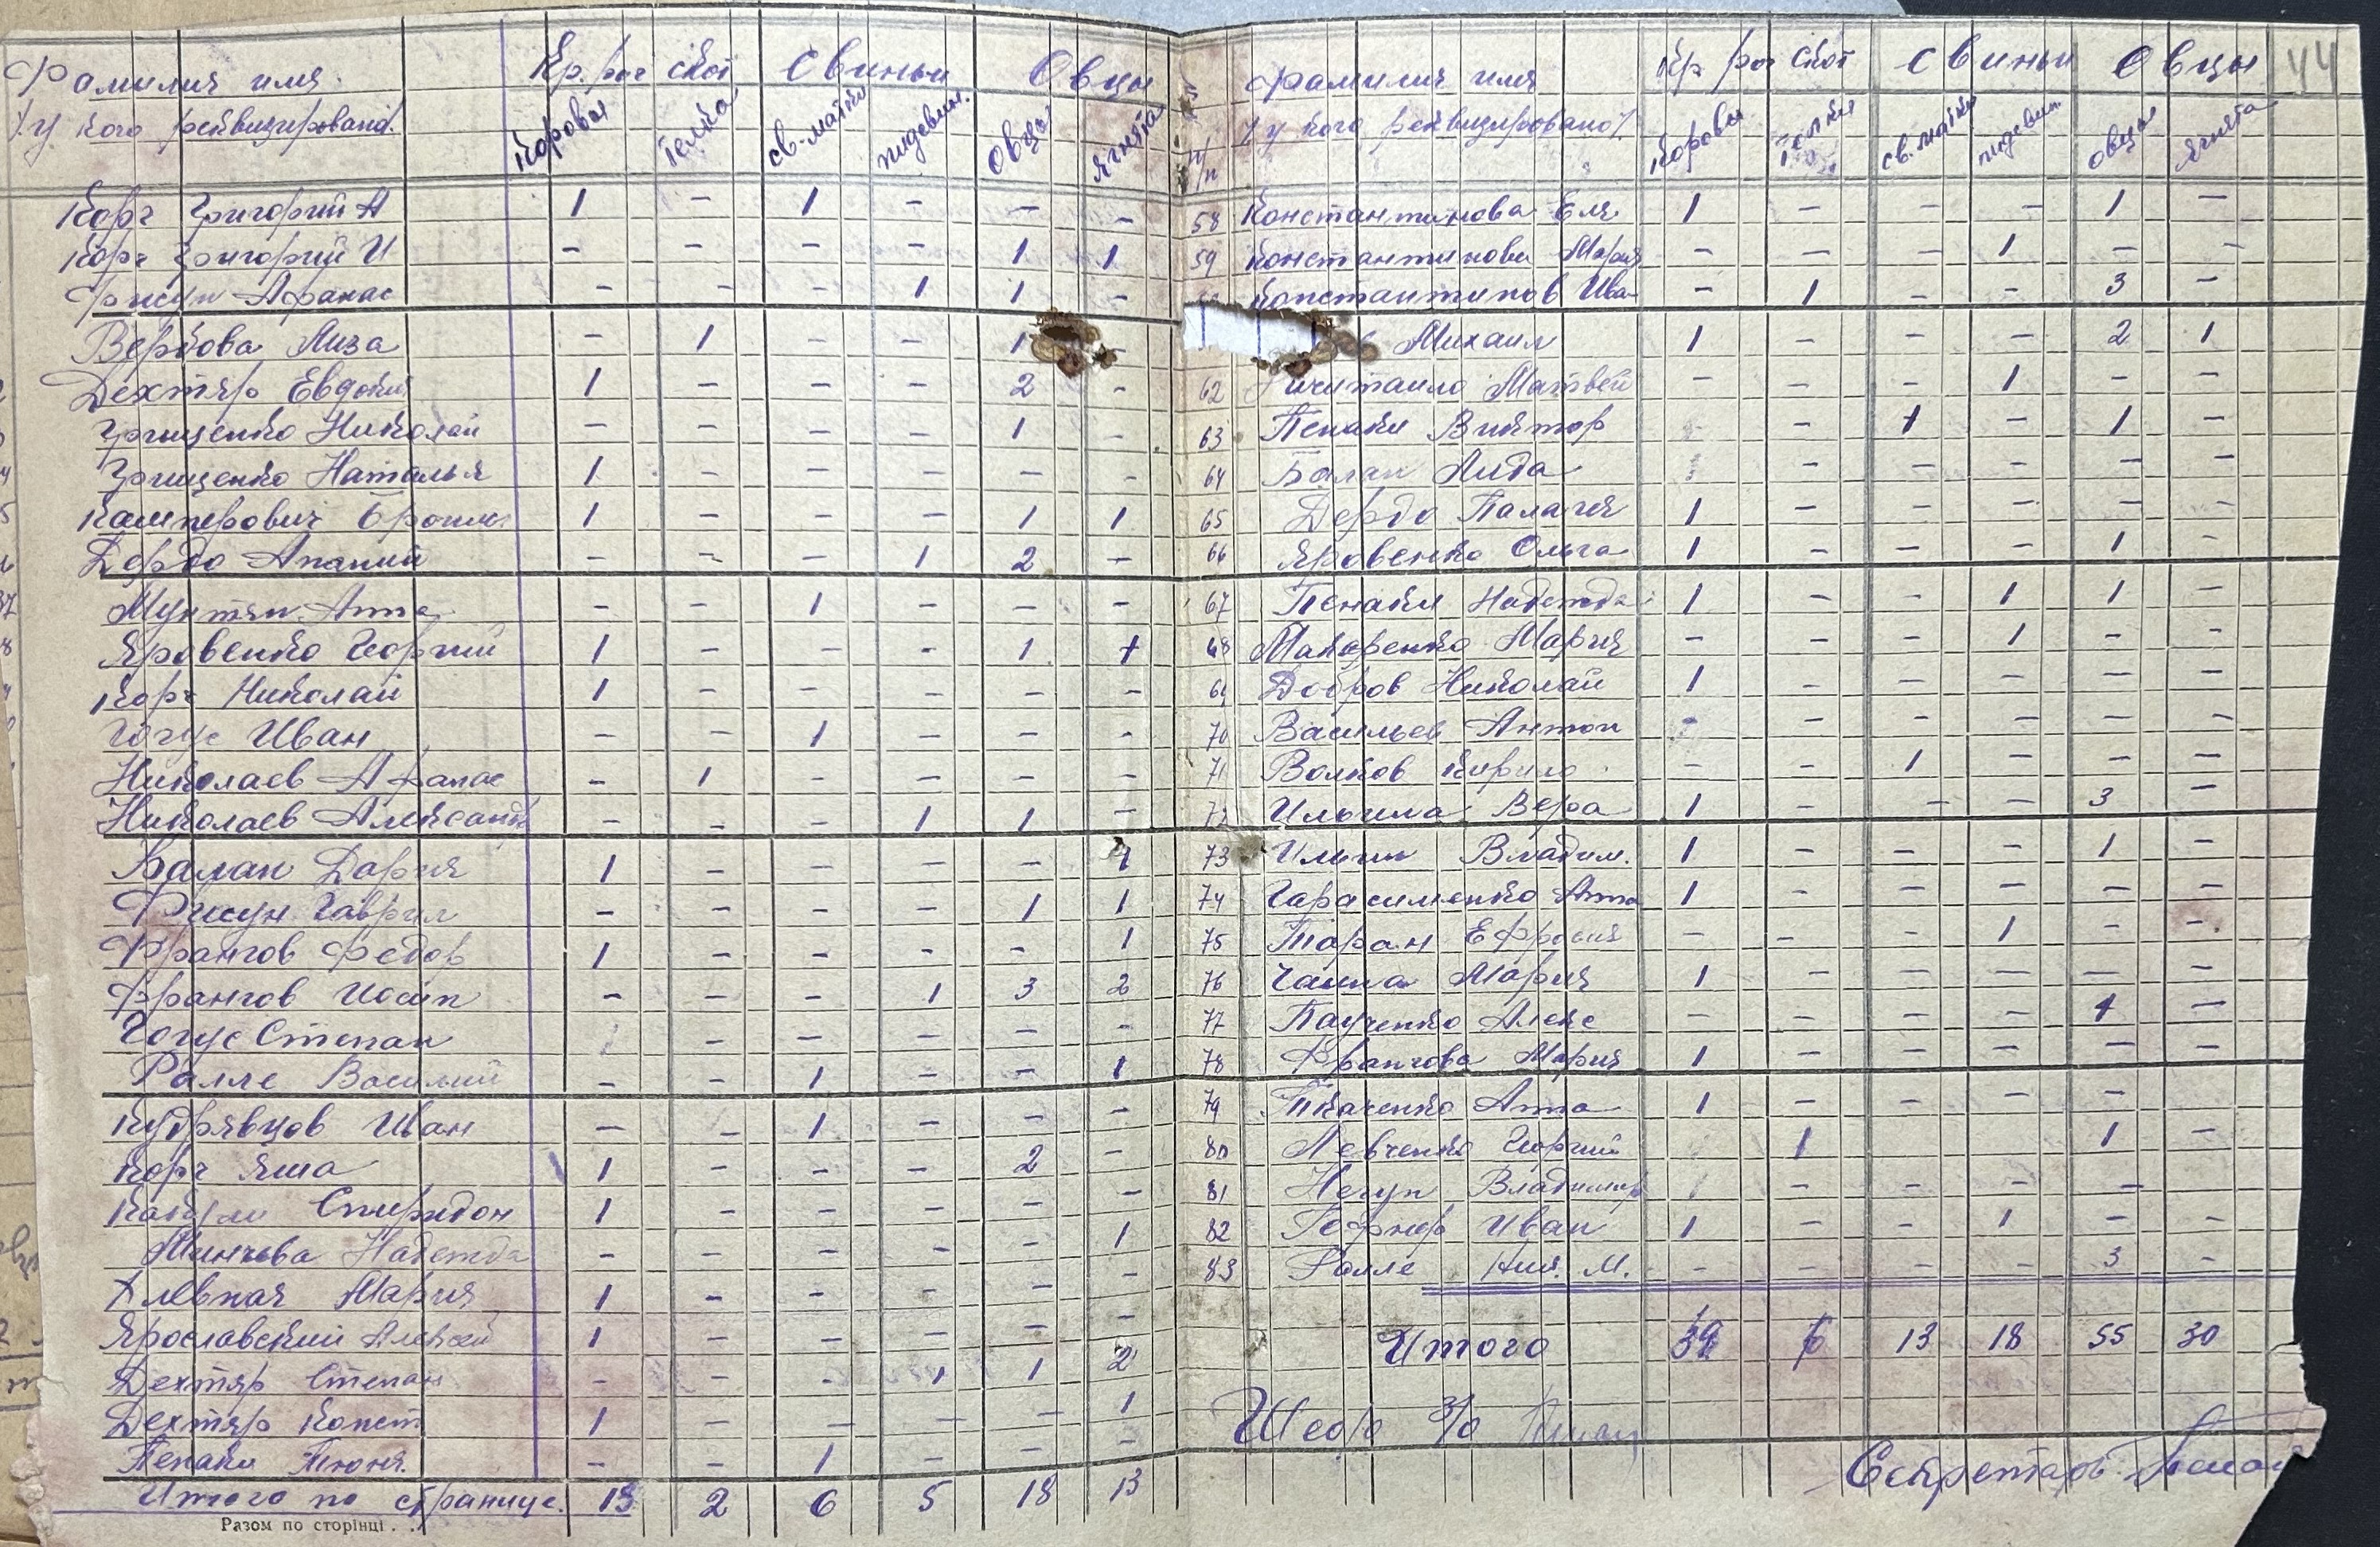 Фамилия имя. Кр. рог скот Свиньи Овцы
/у кого реквизировано/. Коровы Телка св-матки подсвин. Овцы Ягнята
Корч Григорий А 1 – 1 – – –
Корч Григорий И – – – – 1 1
Фисун Афанас – – – – 1 1 –
Вербова Лиза – 1 – – 1 –
Дехтяр Евдокия 1 – – – 2 –
Грищенко Николай – – – – 1 –
Грищенко Наталья 1 – – – – –
Камперович Бронис 1 – – – 1 1
Дердо Ананий – – – 1 2 –
Мунтян Анна – – 1 – – –
Яровенко Георгий 1 – – – 1 1
Корч Николай 1 – – – – –
Гогус Иван – – 1 – – –
Николаев Афанас – 1 – – – –
Николаев Александр – – – 1 1 –
Балан Дария 1 – – – – 1
Фисун Гаврил – – – – 1 1
Франгов Федор 1 – – – – 1
Франгов Иосип – – – 1 3 2
Гогус Степан – – – – –
Ралле Василий – – 1 – – 1
Кудрявцов Иван – – 1 – – –
Корч Яша 1 – – – 2 –
Спиридон 1 – – – – –
Минчева Надежда – – – – – 1
Хлевная Мария 1 – – – – –
Ярославский Алексей 1 – – – – –
Дехтяр Степан – – – 1 1 2
Дехтяр Конст. 1 – – – – 1
Пенаки Тюня. – – 1 – – –
Итого по странице. 13 2 6 5 18 13
Разом по сторінці . .
44
№ п/п Фамилия имя Кр рог скот Свиньи Овцы
/у кого реквизировано/ Коровы Телки св. матки подсвин овцы Ягнята
58 Константинова Еля 1 – – – 1 –
59 Константинова Мария – – – 1 – –
Константинов Ива- – 1 – – 3 –
Михаил 1 – – – 2 1
62 Матвей – – – 1 – –
63 Пенаки Виктор – 1 – 1 –
64 Балан Лида – – – – –
65 Дердо Палагея 1 – – – – –
66 Яровенко Ольга 1 – – – 1 –
67 Пенаки Надежда 1 – – 1 1 –
68 Макаренко Мария – – – 1 – –
69 Добров Николай 1 – – – – –
70 Васильев Антон – – – – – –
71 Волков Кирило – – 1 – – –
72 Ильина Вера 1 – – – 3 –
73 Ильин Владим. 1 – – – 1 –
74 Гарасименко Анна 1 – – – – –
75 Таран Ефросия – – – 1 – –
76 Чаика Мария 1 – – – – –
77 Паученко Алекс – – – – 1 –
78 Франгова Мария 1 – – – – –
79 Ткаченко Анна 1 – – – – –
80 Левченко Георгий 1 – – 1 –
81 Негун Владимир – – – –
82 Гофнер Иван 1 – – 1 – –
83 Ралле Ник. М. – – – – 3 –
Итого 39 6 13 18 55 30
Шеф з/о
Секретарь